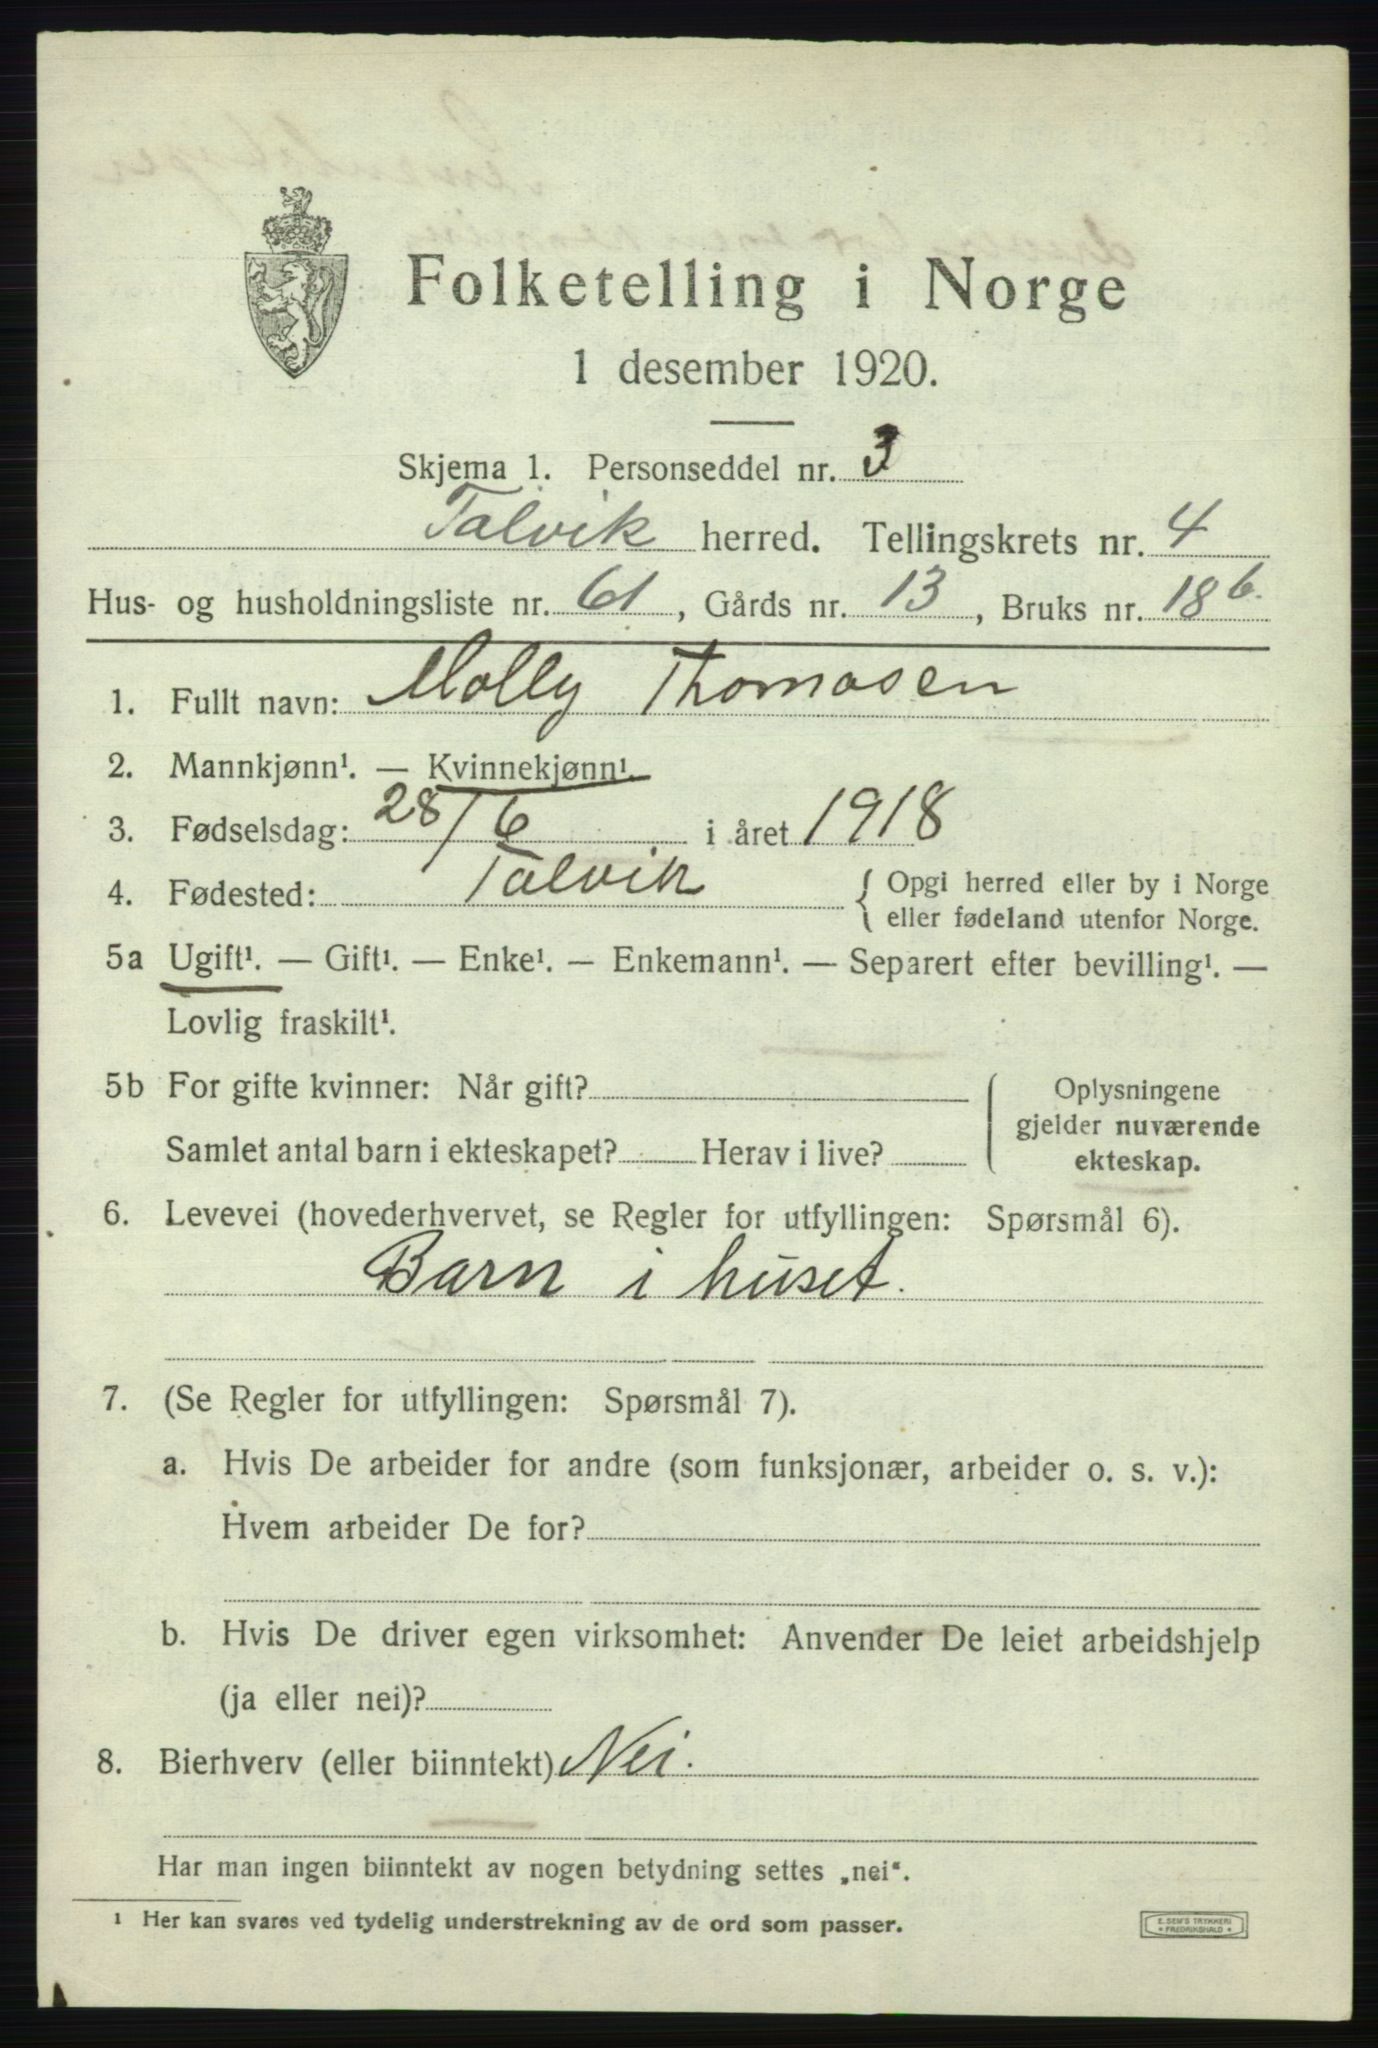 Folketelling i Norge
1 desember 1920.
Skjema 1. Personseddel nr. 3
Talvik herred. Tellingskrets nr. 4
Hus- og husholdningsliste nr. 61, Gårds nr. 13, Bruks nr. 18 b.
1. Fullt navn: Molly Thomasen
2. Mannkjønn¹. — Kvinnekjønn¹.
3. Fødselsdag: 28/6 i året 1918
4. Fødested: Talvik { Opgi herred eller by i Norge
eller fødeland utenfor Norge.
5a Ugift¹. — Gift¹. — Enke¹. — Enkemann¹. — Separert efter bevilling¹. —
Lovlig fraskilt¹.
5b For gifte kvinner: Når gift?
Samlet antal barn i ekteskapet? Herav i live?
Oplysningene
gjelder nuværende
ekteskap.
6. Levevei (hovederhvervet, se Regler for utfyllingen: Spørsmål 6).
Barn i huset.
7. (Se Regler for utfyllingen: Spørsmål 7).
a. Hvis De arbeider for andre (som funksjonær, arbeider o. s. v.):
Hvem arbeider De for?
b. Hvis De driver egen virksomhet: Anvender De leiet arbeidshjelp
(ja eller nei)?
8. Bierhverv (eller biinntekt) Nei.
Har man ingen biinntekt av nogen betydning settes „nei“.
¹ Her kan svares ved tydelig understrekning av de ord som passer.
E. SEM'S TRYKKERI
* FREDRIKSHALD *